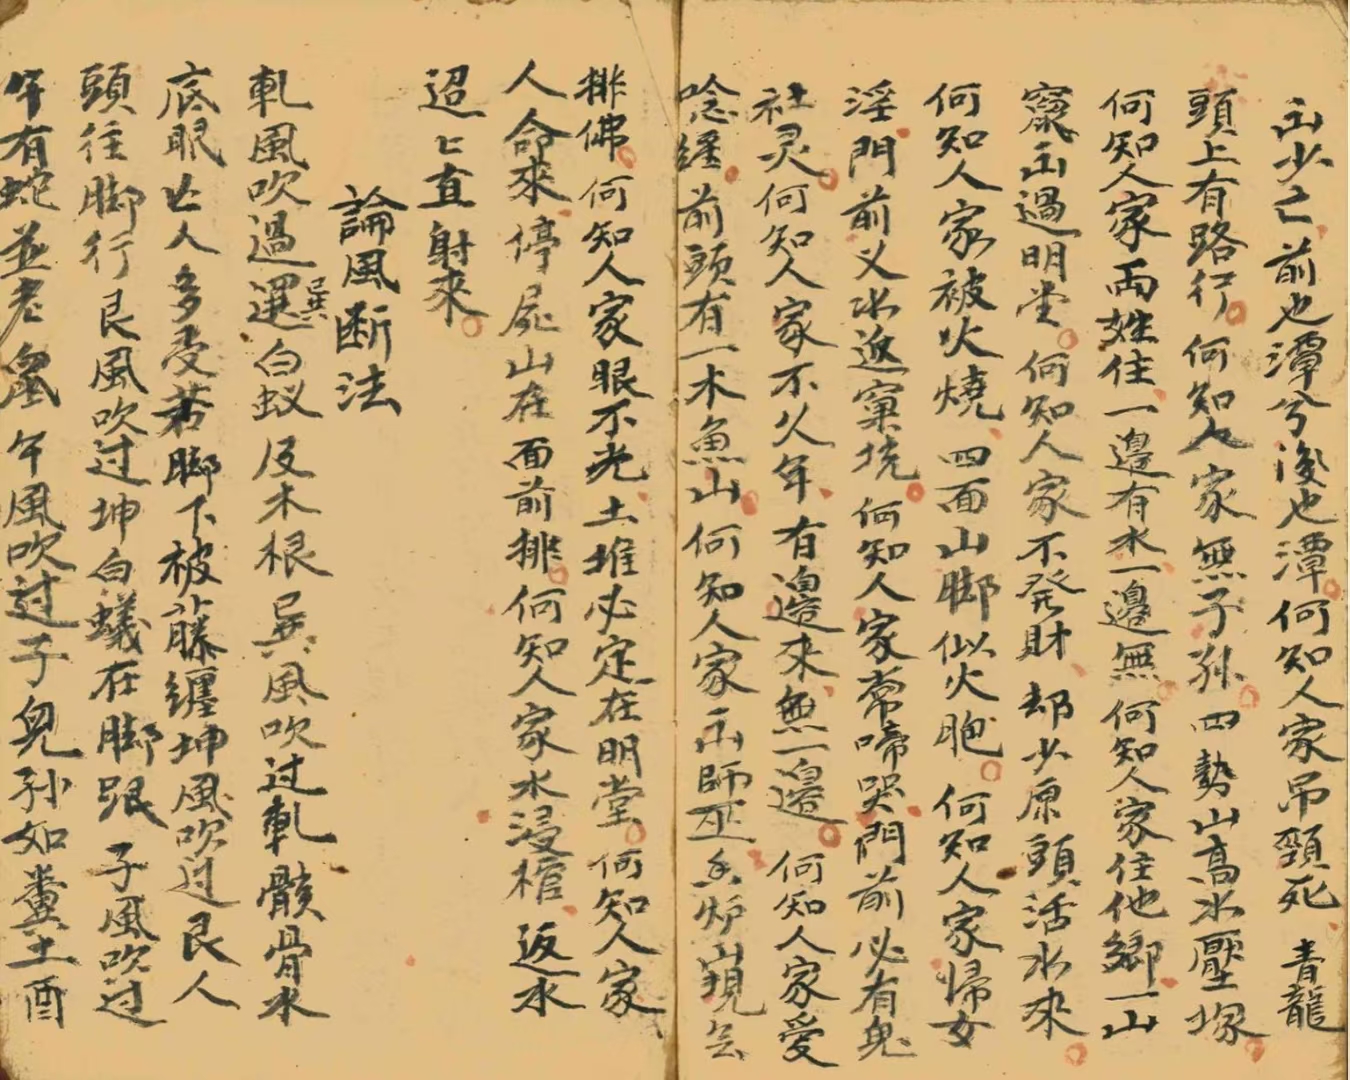 出少亡前也潭兮後也潭何知人家吊頸死青龍
頭上有路行何知人家無子孙四勢山高水壓塚
何知人家両姓住一邉有水一邉無何知人家住他鄉一山
竄出過明堂何知人家不発財却少原頭活水來
何知人家被火燒四面山脚似火胞何知人家歸女
淫門前义水返窠挠何知人家常啼哭門前必有鬼
社灵何知人家不久年有邉來無一邉何知人家爱
唸經前頭有一木魚山何知人家出師巫香炉山現気
排佛何知人家眼不光土堆必定在明堂何知人家
人命來停屍山在面前排何知人家水浸棺返水
迢〻直射來
論風断法
乹風吹過選巽巳白蚁反木根巽風吹过乹骸骨水
底眠亡人多受苦脚下被藤纏坤風吹过艮人
頭往脚行艮風吹过坤白蟻在脚跟子風吹过
午有蛇並老鼠午風吹过子兒孙如糞土酉